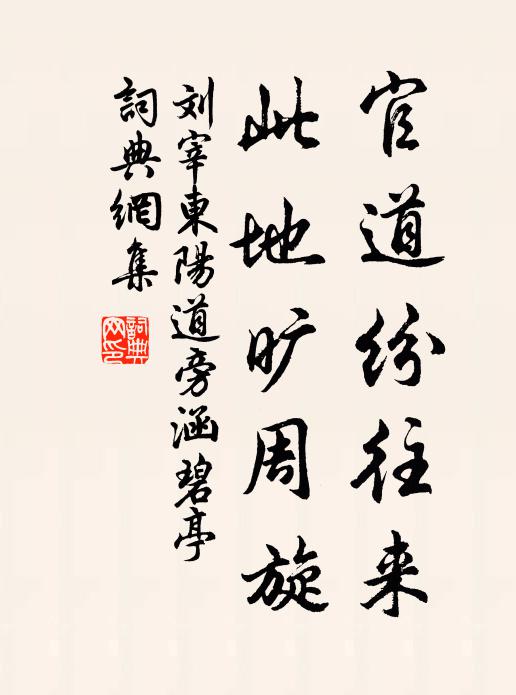 官道纷往来
此地旷周旋
刘宰東陽道旁涵碧亭
詞典網集
詞典網印